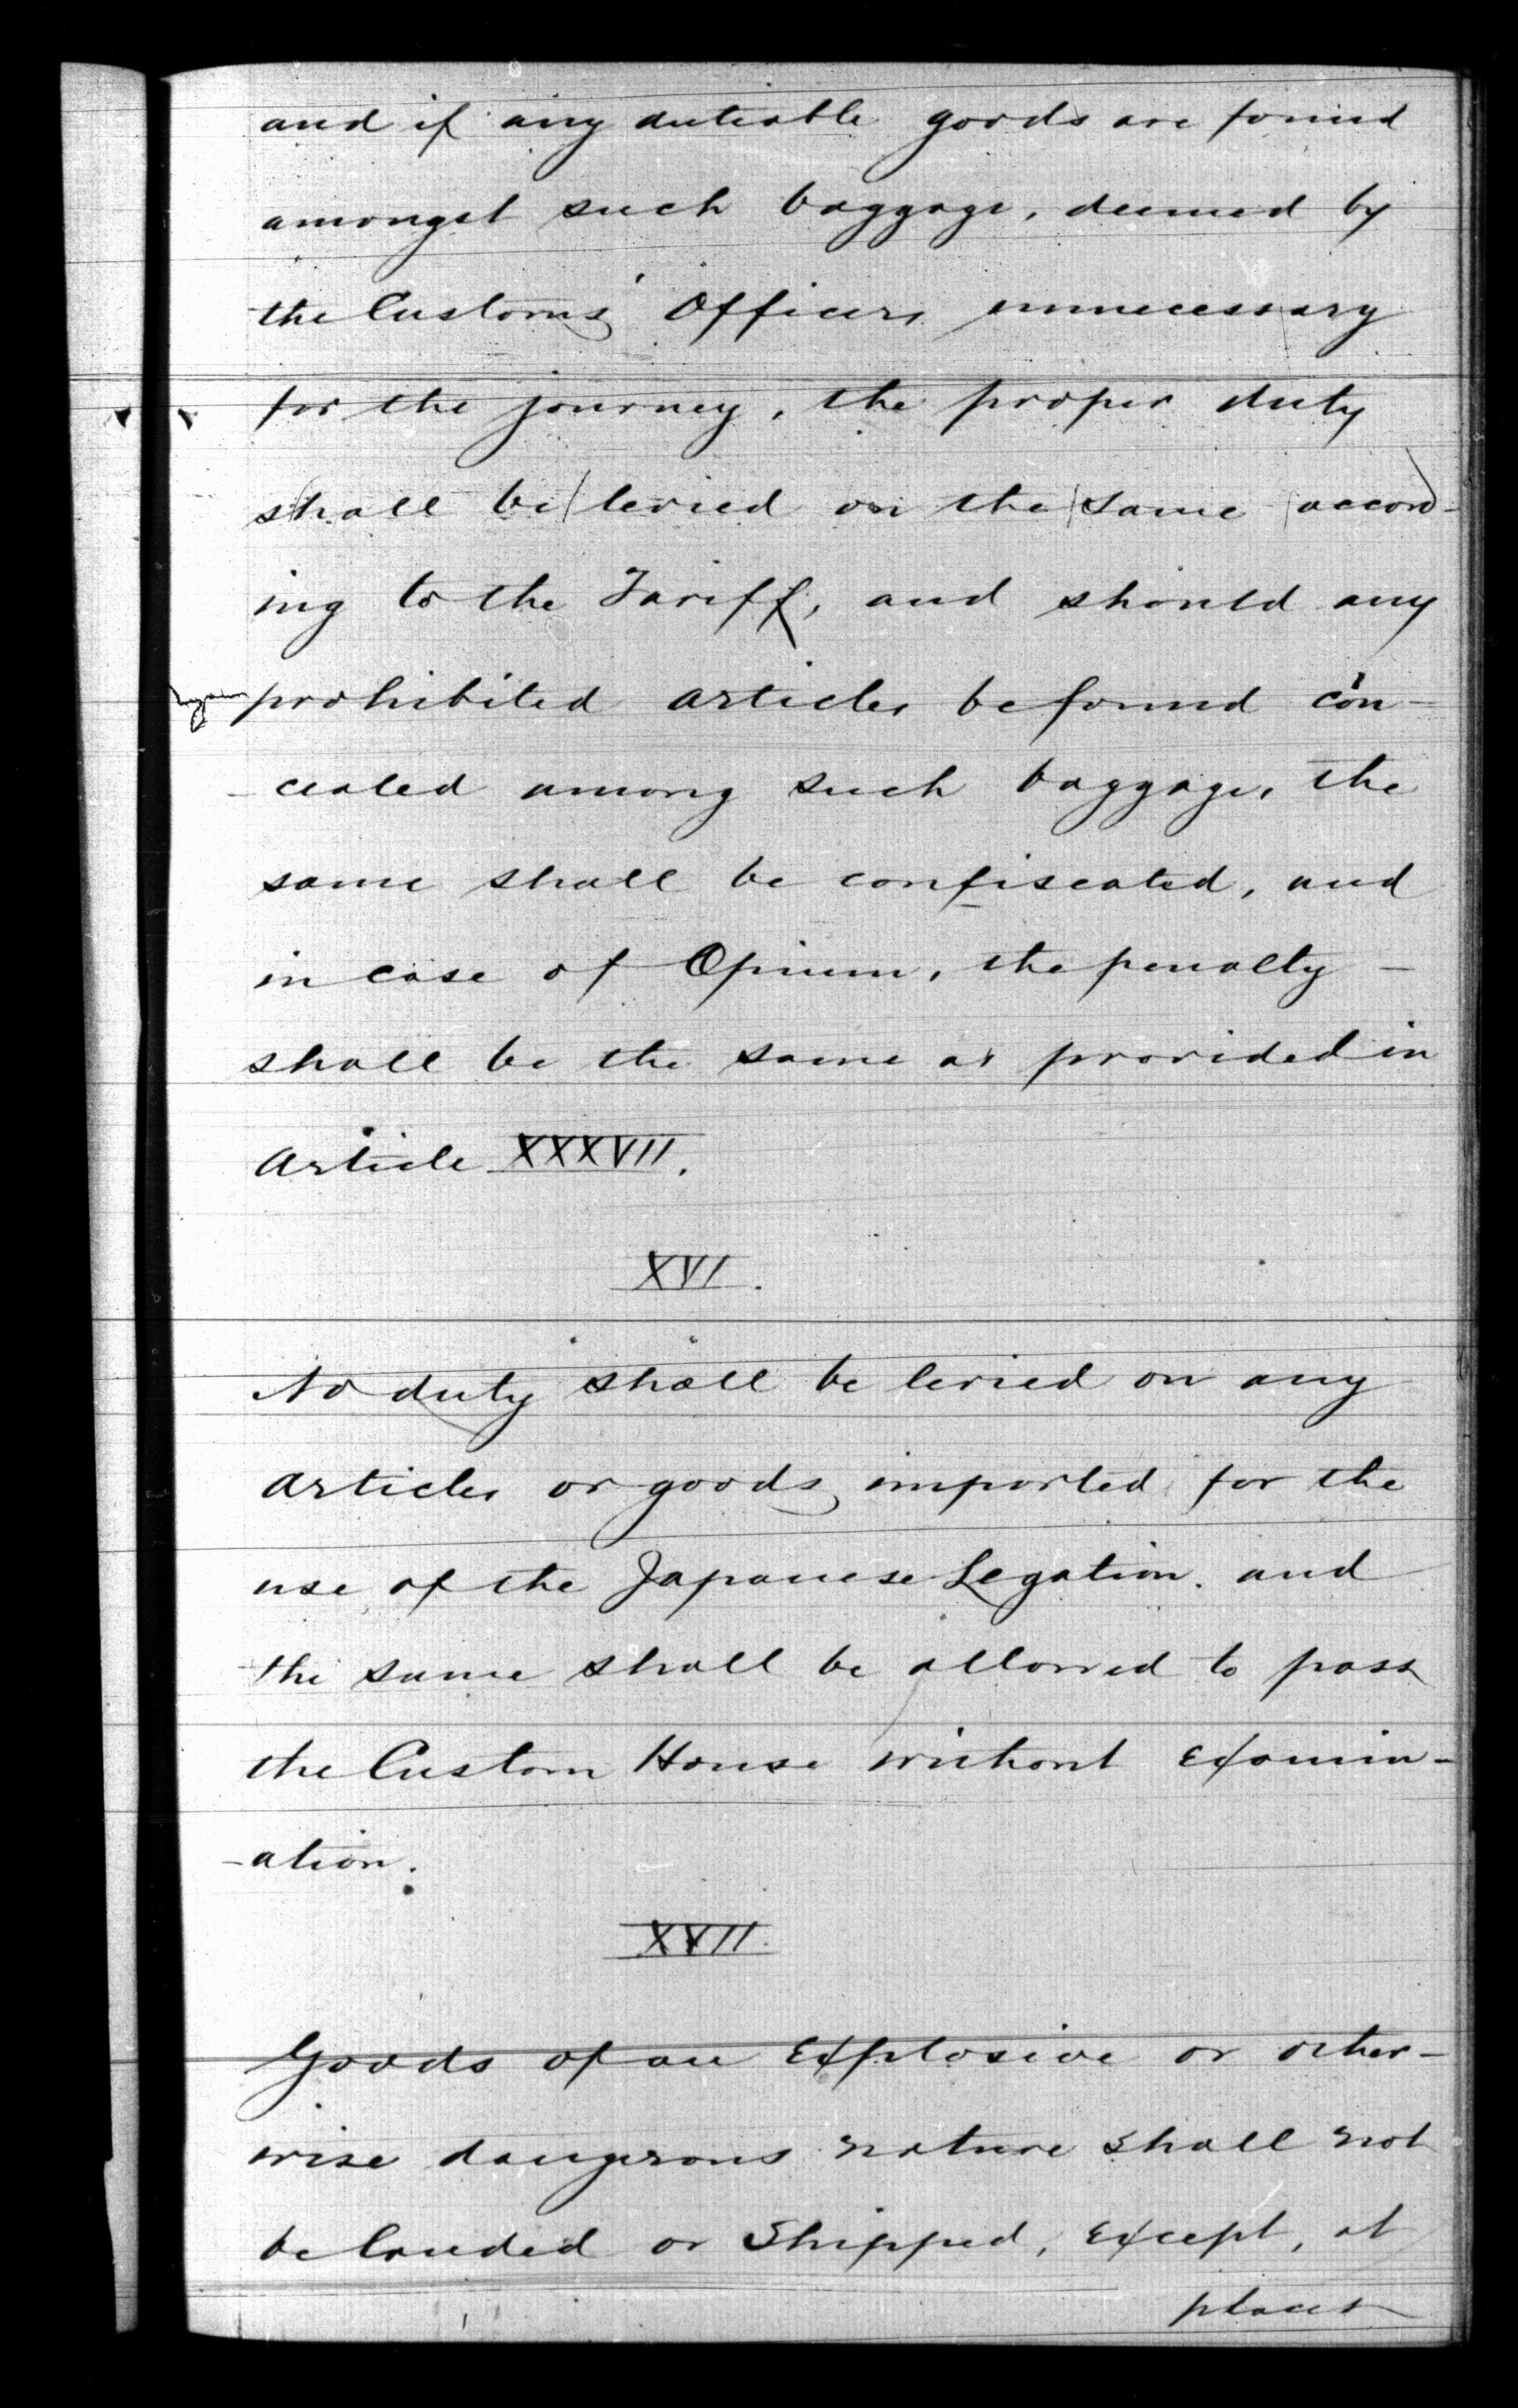 and if any dutiable goods are found
amongst such baggage, deemed by
the Customs' Officers unnecessary
for the journey, the proper duty
shall be levied on the same accord-
ing to the Tariff, and should any
prohibited articles be found con-
cealed among such baggage, the
same shall be confiscated, and
in case of Opium, the penalty -
shall be the same as provided in
Article XXXVII.
XVI.
No duty shall be levied on any
articles or goods imported for the
use of the Japanese Legation. and
the same shall be allowed to pass
the Custom House without examin-
-ation.
XVII.
Goods of an explosive or other-
wise dangerous nature shall not
be landed or Shipped, except, at
places